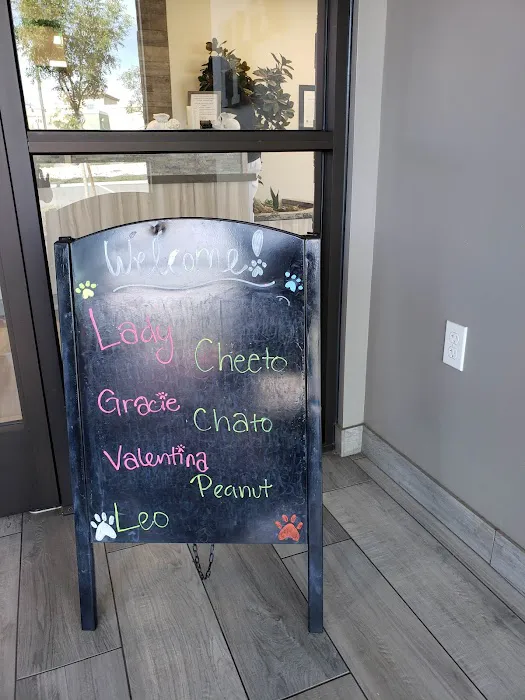 Welcome!
Lady
Cheeto
Gracie
Chato
Valentina
Peanut
Leo